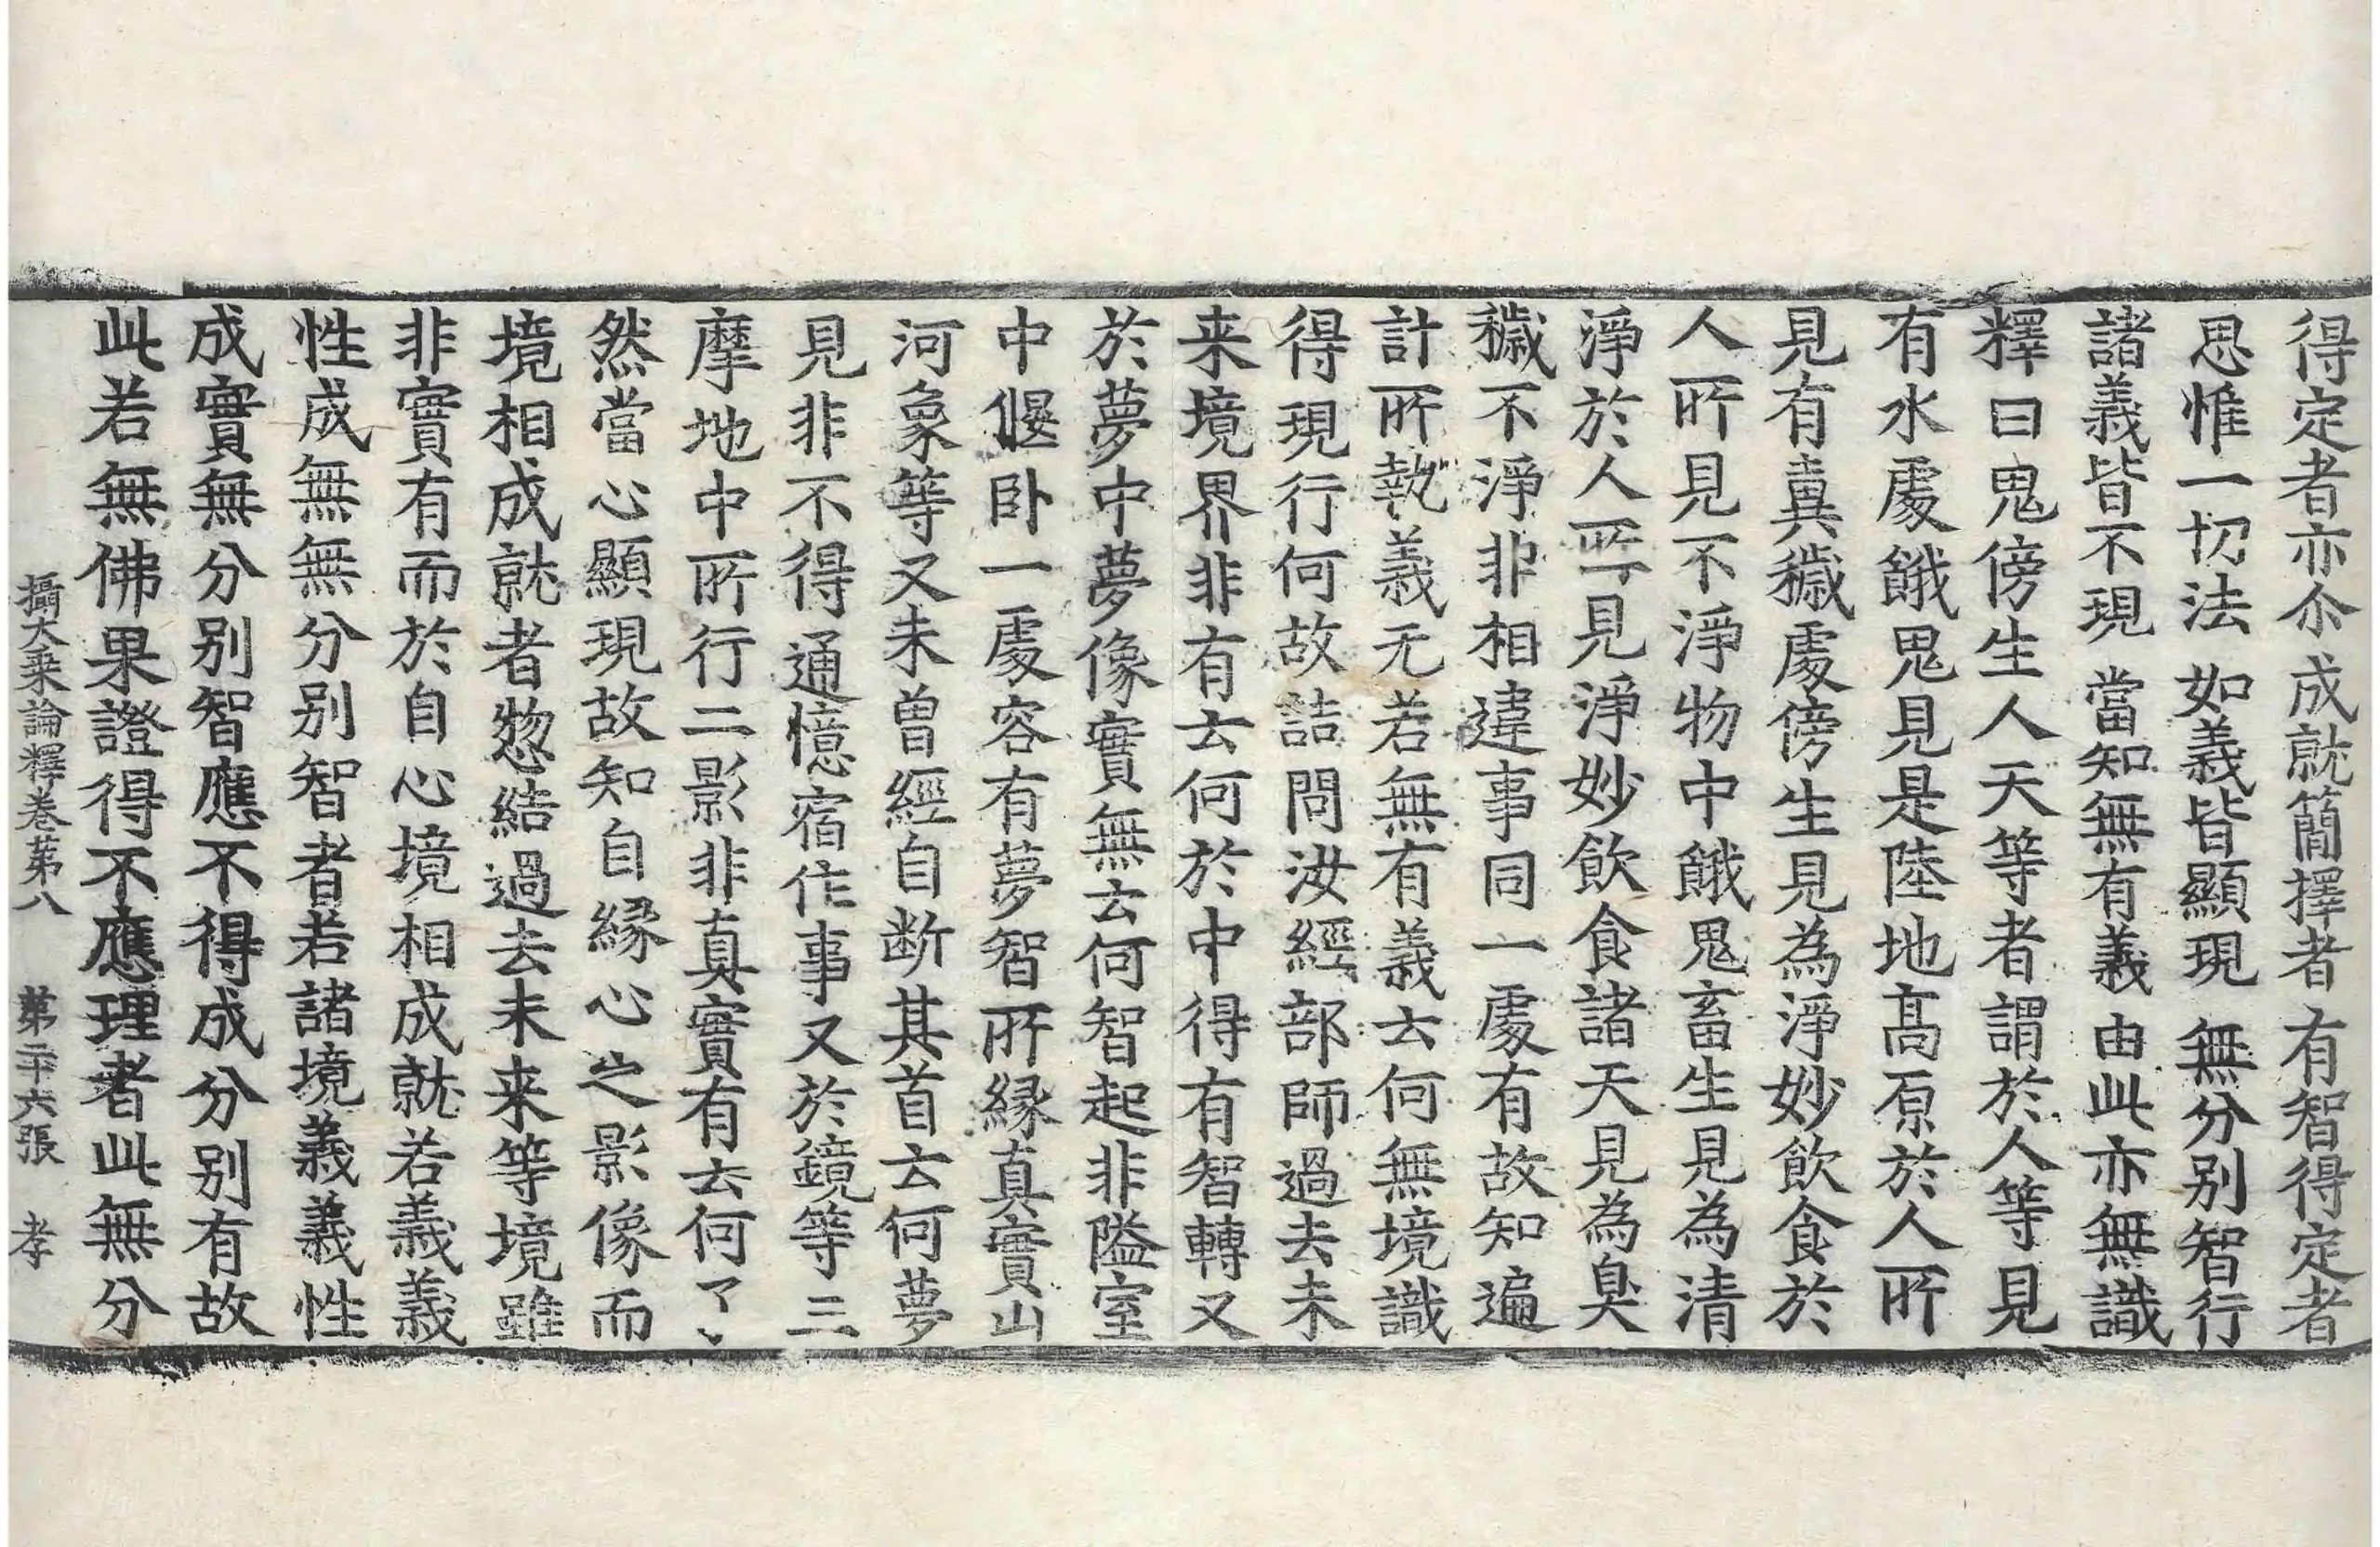 得定者亦尒 成就簡擇者 有智得定者
思惟一切法 如義皆顯現 無分别智行
諸義皆不現 當知無有義 由此亦無識
釋曰鬼傍生人天等者謂於人等見
有水處餓鬼見是陸地髙原於人所
見有糞穢處傍生見為淨妙飲食於
人所見不淨物中餓鬼畜生見為清
淨於人所見淨妙飲食諸天見為臭
穢不淨非相違事同一處有故知遍
計所執義无若無有義云何無境識
得現行何故詰問汝經部師過去未
来境界非有云何於中得有智轉又
於夢中夢像實無云何智起非隘室
中偃卧一處容有夢智所縁真實山
河象等又未曽經自断其首云何夢
見非不得通憶宿作事又於鏡等三
摩地中所行二影非真實有云何了〻
然當心顯現故知自縁心之影像而
境相成就者惣結過去未来等境雖
非實有而於自心境相成就若義義
性成無無分别智者若諸境義義性
成實無分别智應不得成分别有故
此若無佛果證得不應理者此無分
攝大乗論釋卷苐八 苐二十六張 孝